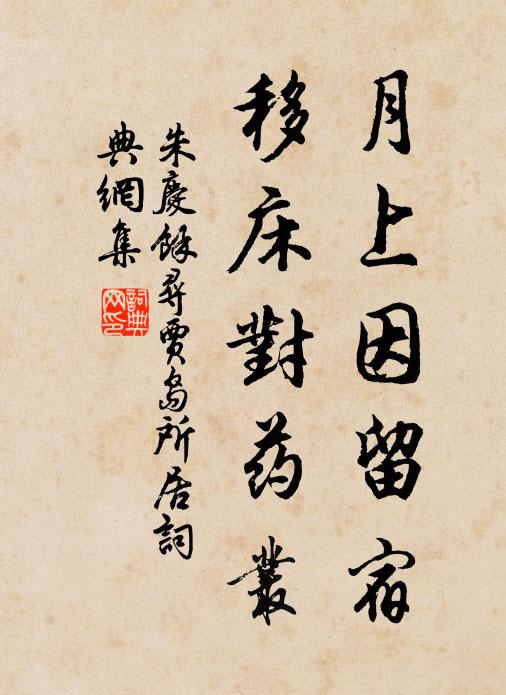 月上因留宿
移床對药叢
朱慶餘尋賈島所居詞
典網集
詞典
网印